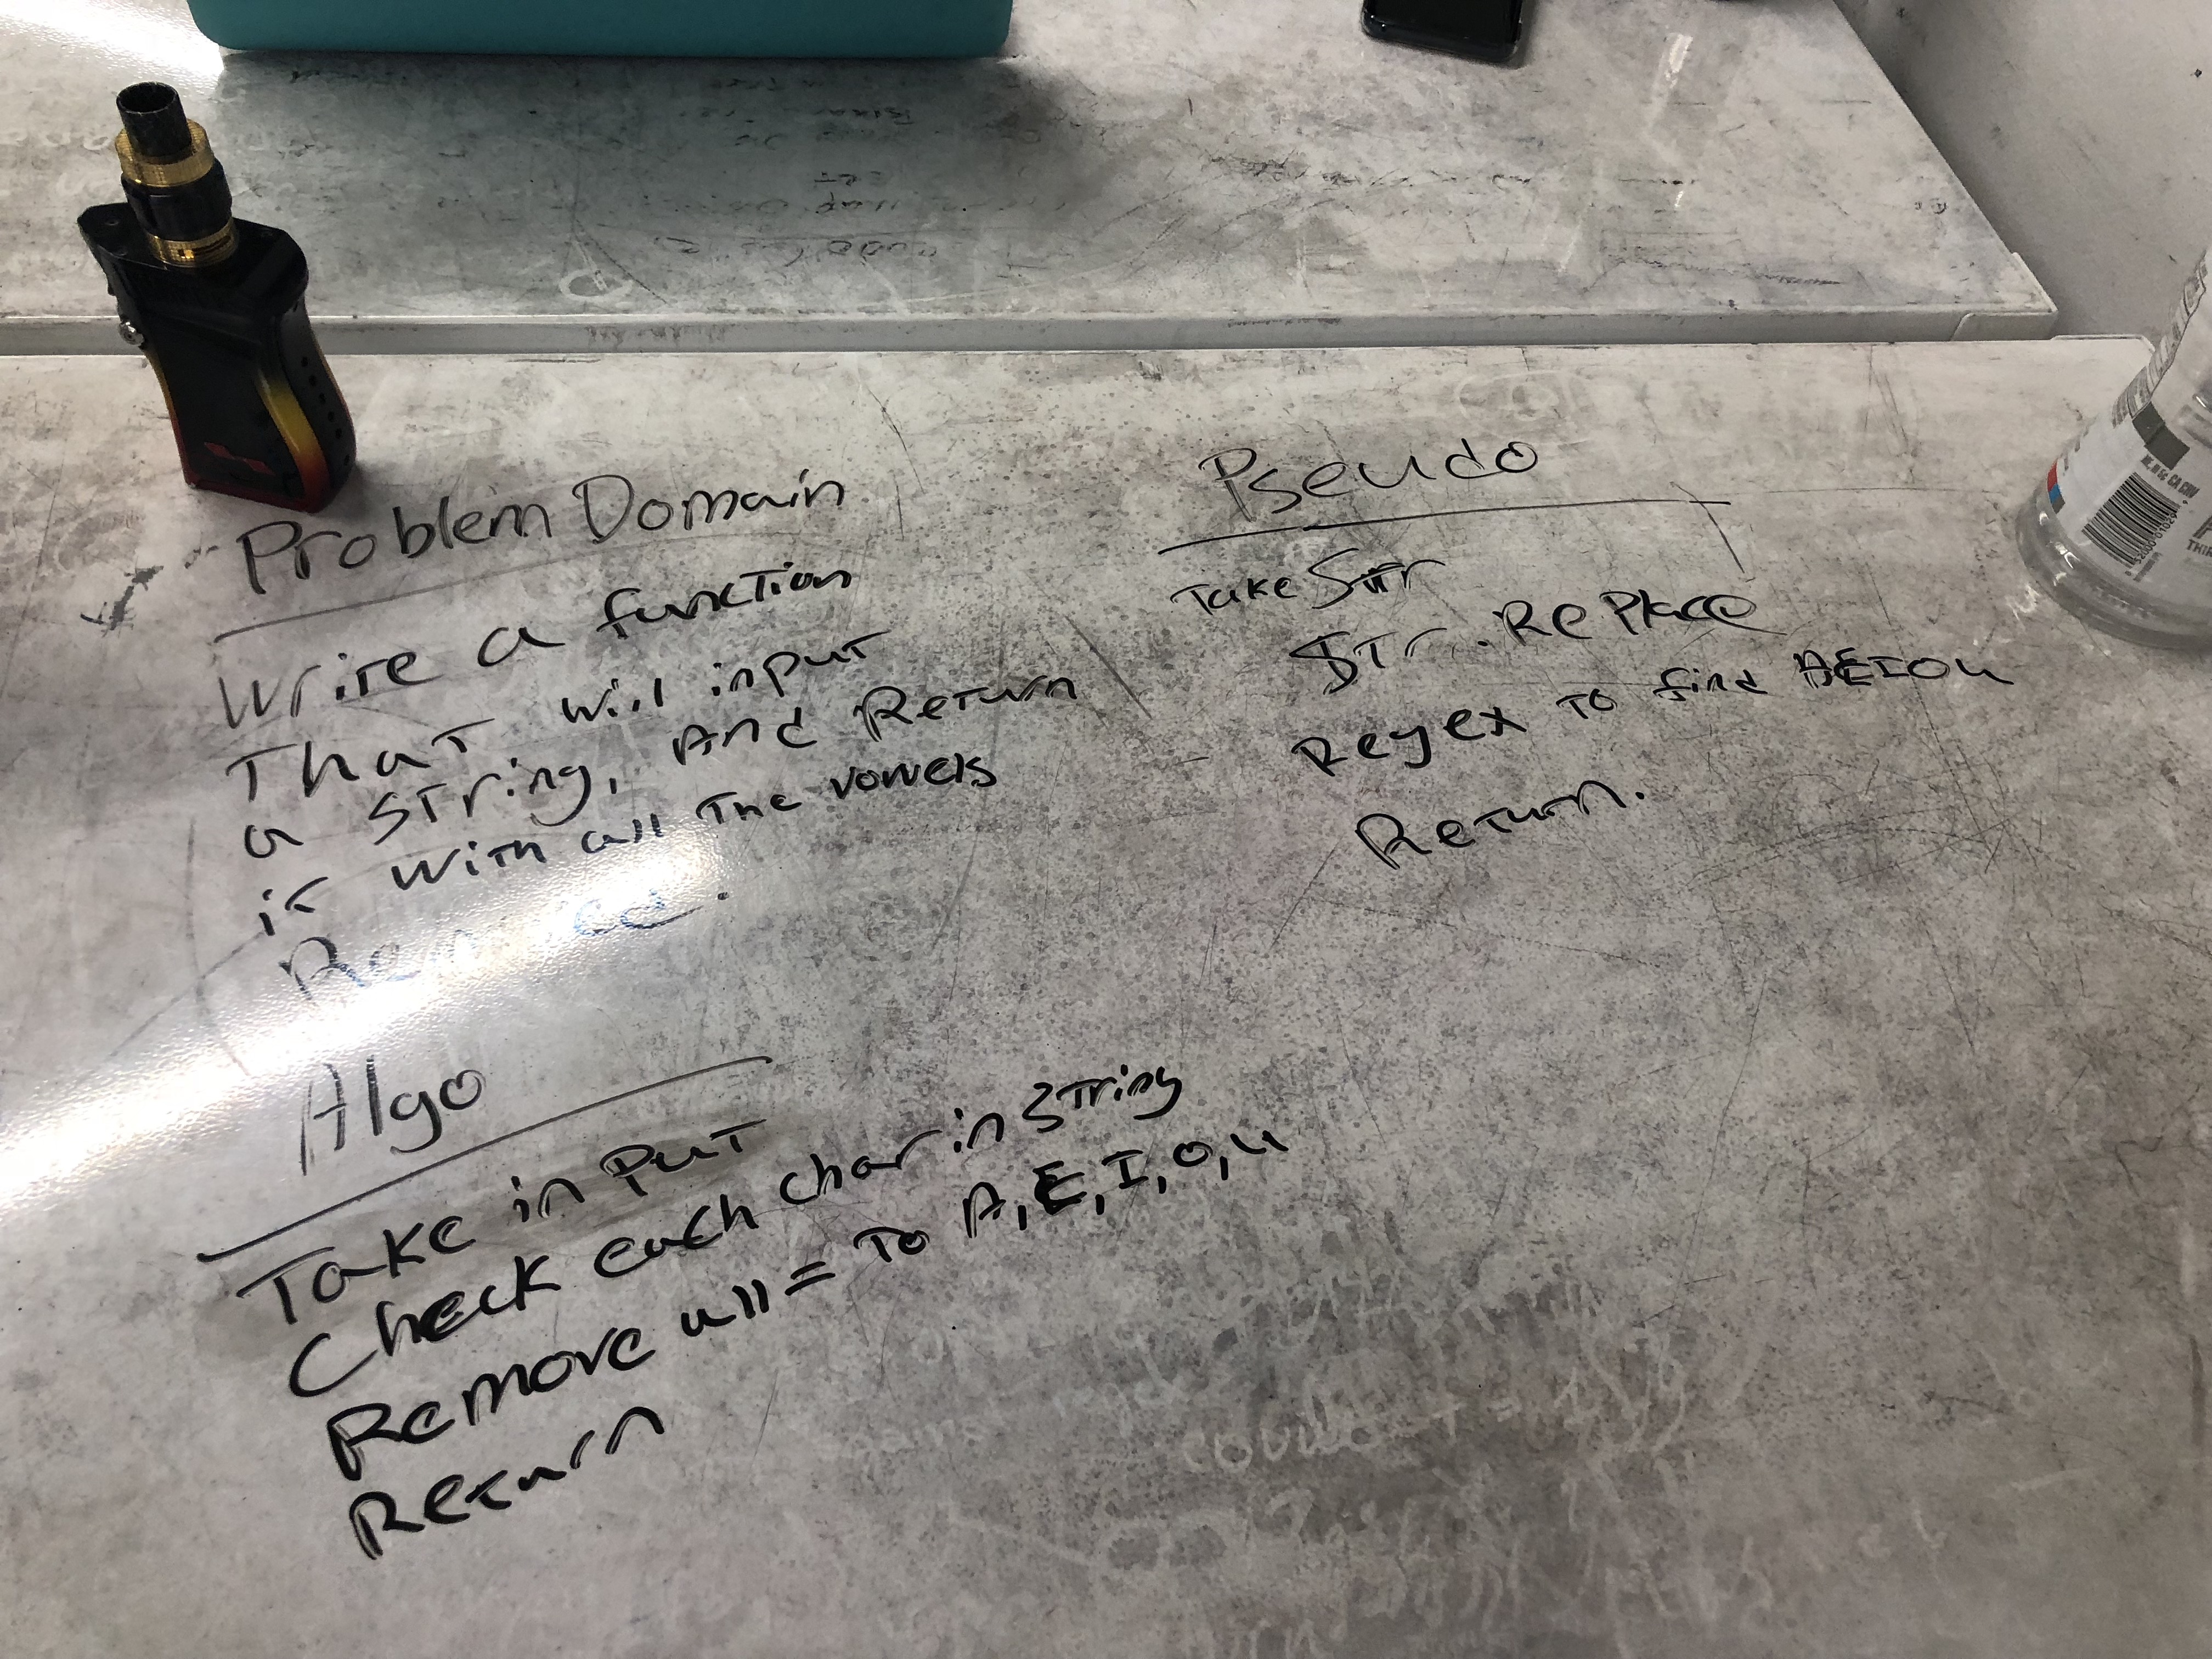 Problem Domain
Write a function
That will input
a string, And Return
it with all the vowels
Removed.
Algo
Take in put
Check each char in string
Remove all = To A, E, I, O, u
Return
Pseudo
Take Str
Str. RePlace
Regex to find AEIOu
Return.